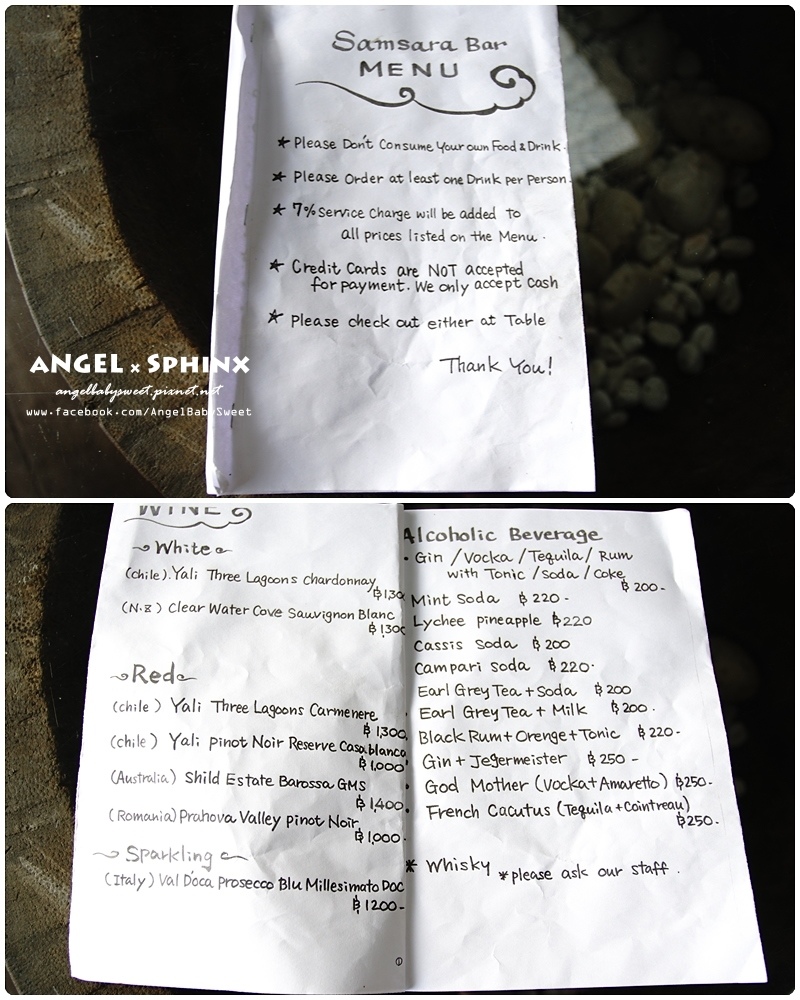 Samsara Bar
MENU
★ Please Don't Consume Your own Food & Drink.
★ Please Order at least one Drink per Person.
★ 7% Service Charge will be added to
all prices listed on the Menu.
★ Credit Cards are NOT accepted
for payment. We only accept Cash
★ Please check out either at Table
Thank You!
ANGEL x SPHINX
angelbabysweet.pixnet.net
www.facebook.com/AngelBabySweet
WINE
White
(chile). Yali Three Lagoons chardonnay
฿1,30
(N.Z) Clear Water Cove Sauvignon Blanc
฿1,300
Red
(chile) Yali Three Lagoons Carmenere
฿1,300
(chile) Yali pinot Noir Reserve Casablanca
฿1,000
(Australia) Shild Estate Barossa GMS
฿1,400
(Romania) Prahova Valley pinot Noir
฿1,000.
Sparkling
(Italy) Val D'oca Prosecco Blu Millesimato Doc
฿1200-
①
Alcoholic Beverage
• Gin / Vocka / Tequila / Rum
with Tonic / Soda / Coke
฿200-
Mint Soda ฿220-
Lychee pineapple ฿220
Cassis Soda ฿200
Campari Soda ฿220.
Earl Grey Tea + Soda ฿200
Earl Grey Tea + Milk ฿200.
Black Rum + Orenge + Tonic ฿220-
Gin + Jegermeister ฿250-
God Mother (Vocka + Amaretto) ฿250-
French Cacutus (Tequila + Cointreau)
฿250.
* Whisky *please ask our staff.